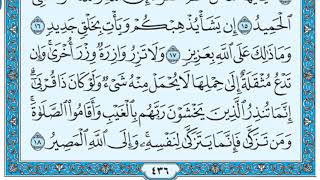 ٱلْحَمِيدُ ١٥ إِن يَشَأْ يُذْهِبْكُمْ وَيَأْتِ بِخَلْقٍ جَدِيدٍ ١٦
وَمَا ذَٰلِكَ عَلَى ٱللَّهِ بِعَزِيزٍ ١٧ وَلَا تَزِرُ وَازِرَةٌ وِزْرَ أُخْرَىٰ وَإِن
تَدْعُ مُثْقَلَةٌ إِلَىٰ حِمْلِهَا لَا يُحْمَلْ مِنْهُ شَىْءٌ وَلَوْ كَانَ ذَا قُرْبَىٰٓ
إِنَّمَا تُنذِرُ ٱلَّذِينَ يَخْشَوْنَ رَبَّهُم بِٱلْغَيْبِ وَأَقَامُوا۟ ٱلصَّلَوٰةَ
وَمَن تَزَكَّىٰ فَإِنَّمَا يَتَزَكَّىٰ لِنَفْسِهِۦ وَإِلَى ٱللَّهِ ٱلْمَصِيرُ ١٨
٤٣٦